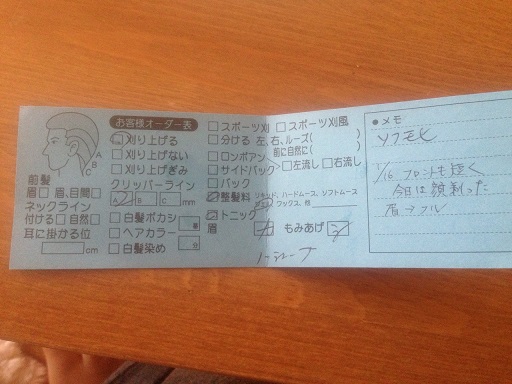 お客様オーダー表
刈り上げる
刈り上げない
刈り上げぎみ
クリッパーライン
A B C mm
白髪ボカシ
ヘアカラー
白髪染め
A
B
C
前髪
眉 眉、目間
ネックライン
付ける 自然
耳に掛かる位
cm
スポーツ刈 スポーツ刈風
分ける 左、右、ルーズ( )
前に自然に( )
ロンボアン
サイドバック 左流し 右流し
バック
整髪料 リキッド、ハードムース、ソフトムース
ワックス、他
トニック
眉 もみあげ
●メモ
1/16 フロントも短く
今日は顔剃った